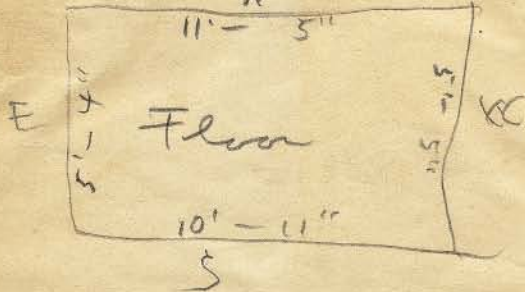 11' - 5"
E
5' - 4"
Floor
5' - 5"
10' - 11"
S